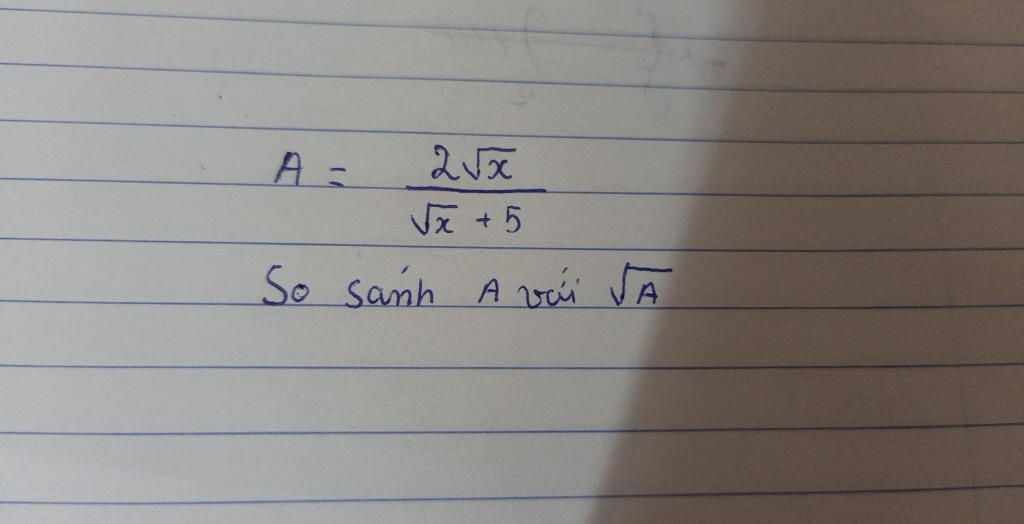 A = \frac{2\sqrt{x}}{\sqrt{x} + 5}
So sánh A với \sqrt{A}